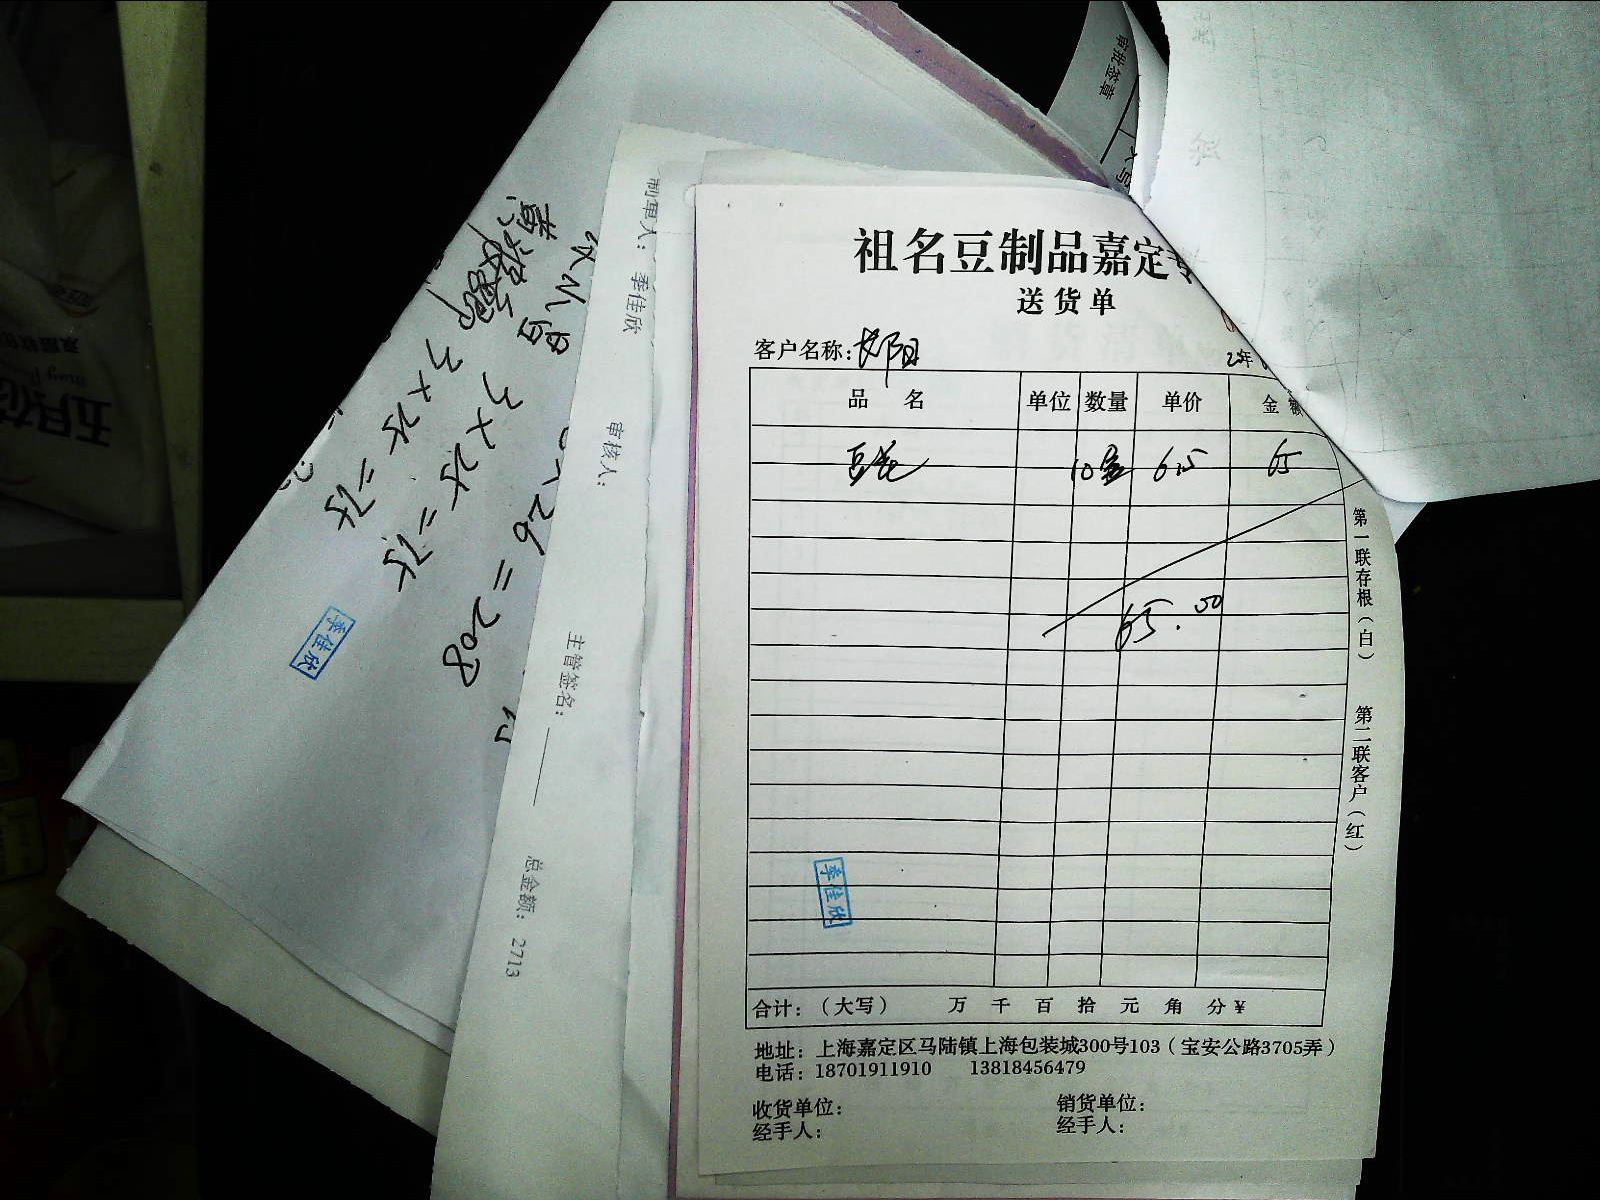 祖名豆制品嘉定
送货单
客户名称：
年
品 名 单位 数量 单价 金额
豆花 10盒 6.5 65
65.00
季佳欣
合计：（大写） 万 千 百 拾 元 角 分 ¥
地址：上海嘉定区马陆镇上海包装城300号103（宝安公路3705弄）
电话：18701911910 13818456479
收货单位： 销货单位：
经手人： 经手人：
第一联存根（白） 第二联客户（红）
制单人：季佳欣 审核人： 主管签名： 总金额：2713
26=208
3×25=75
3×25=75
季佳欣
审批签章